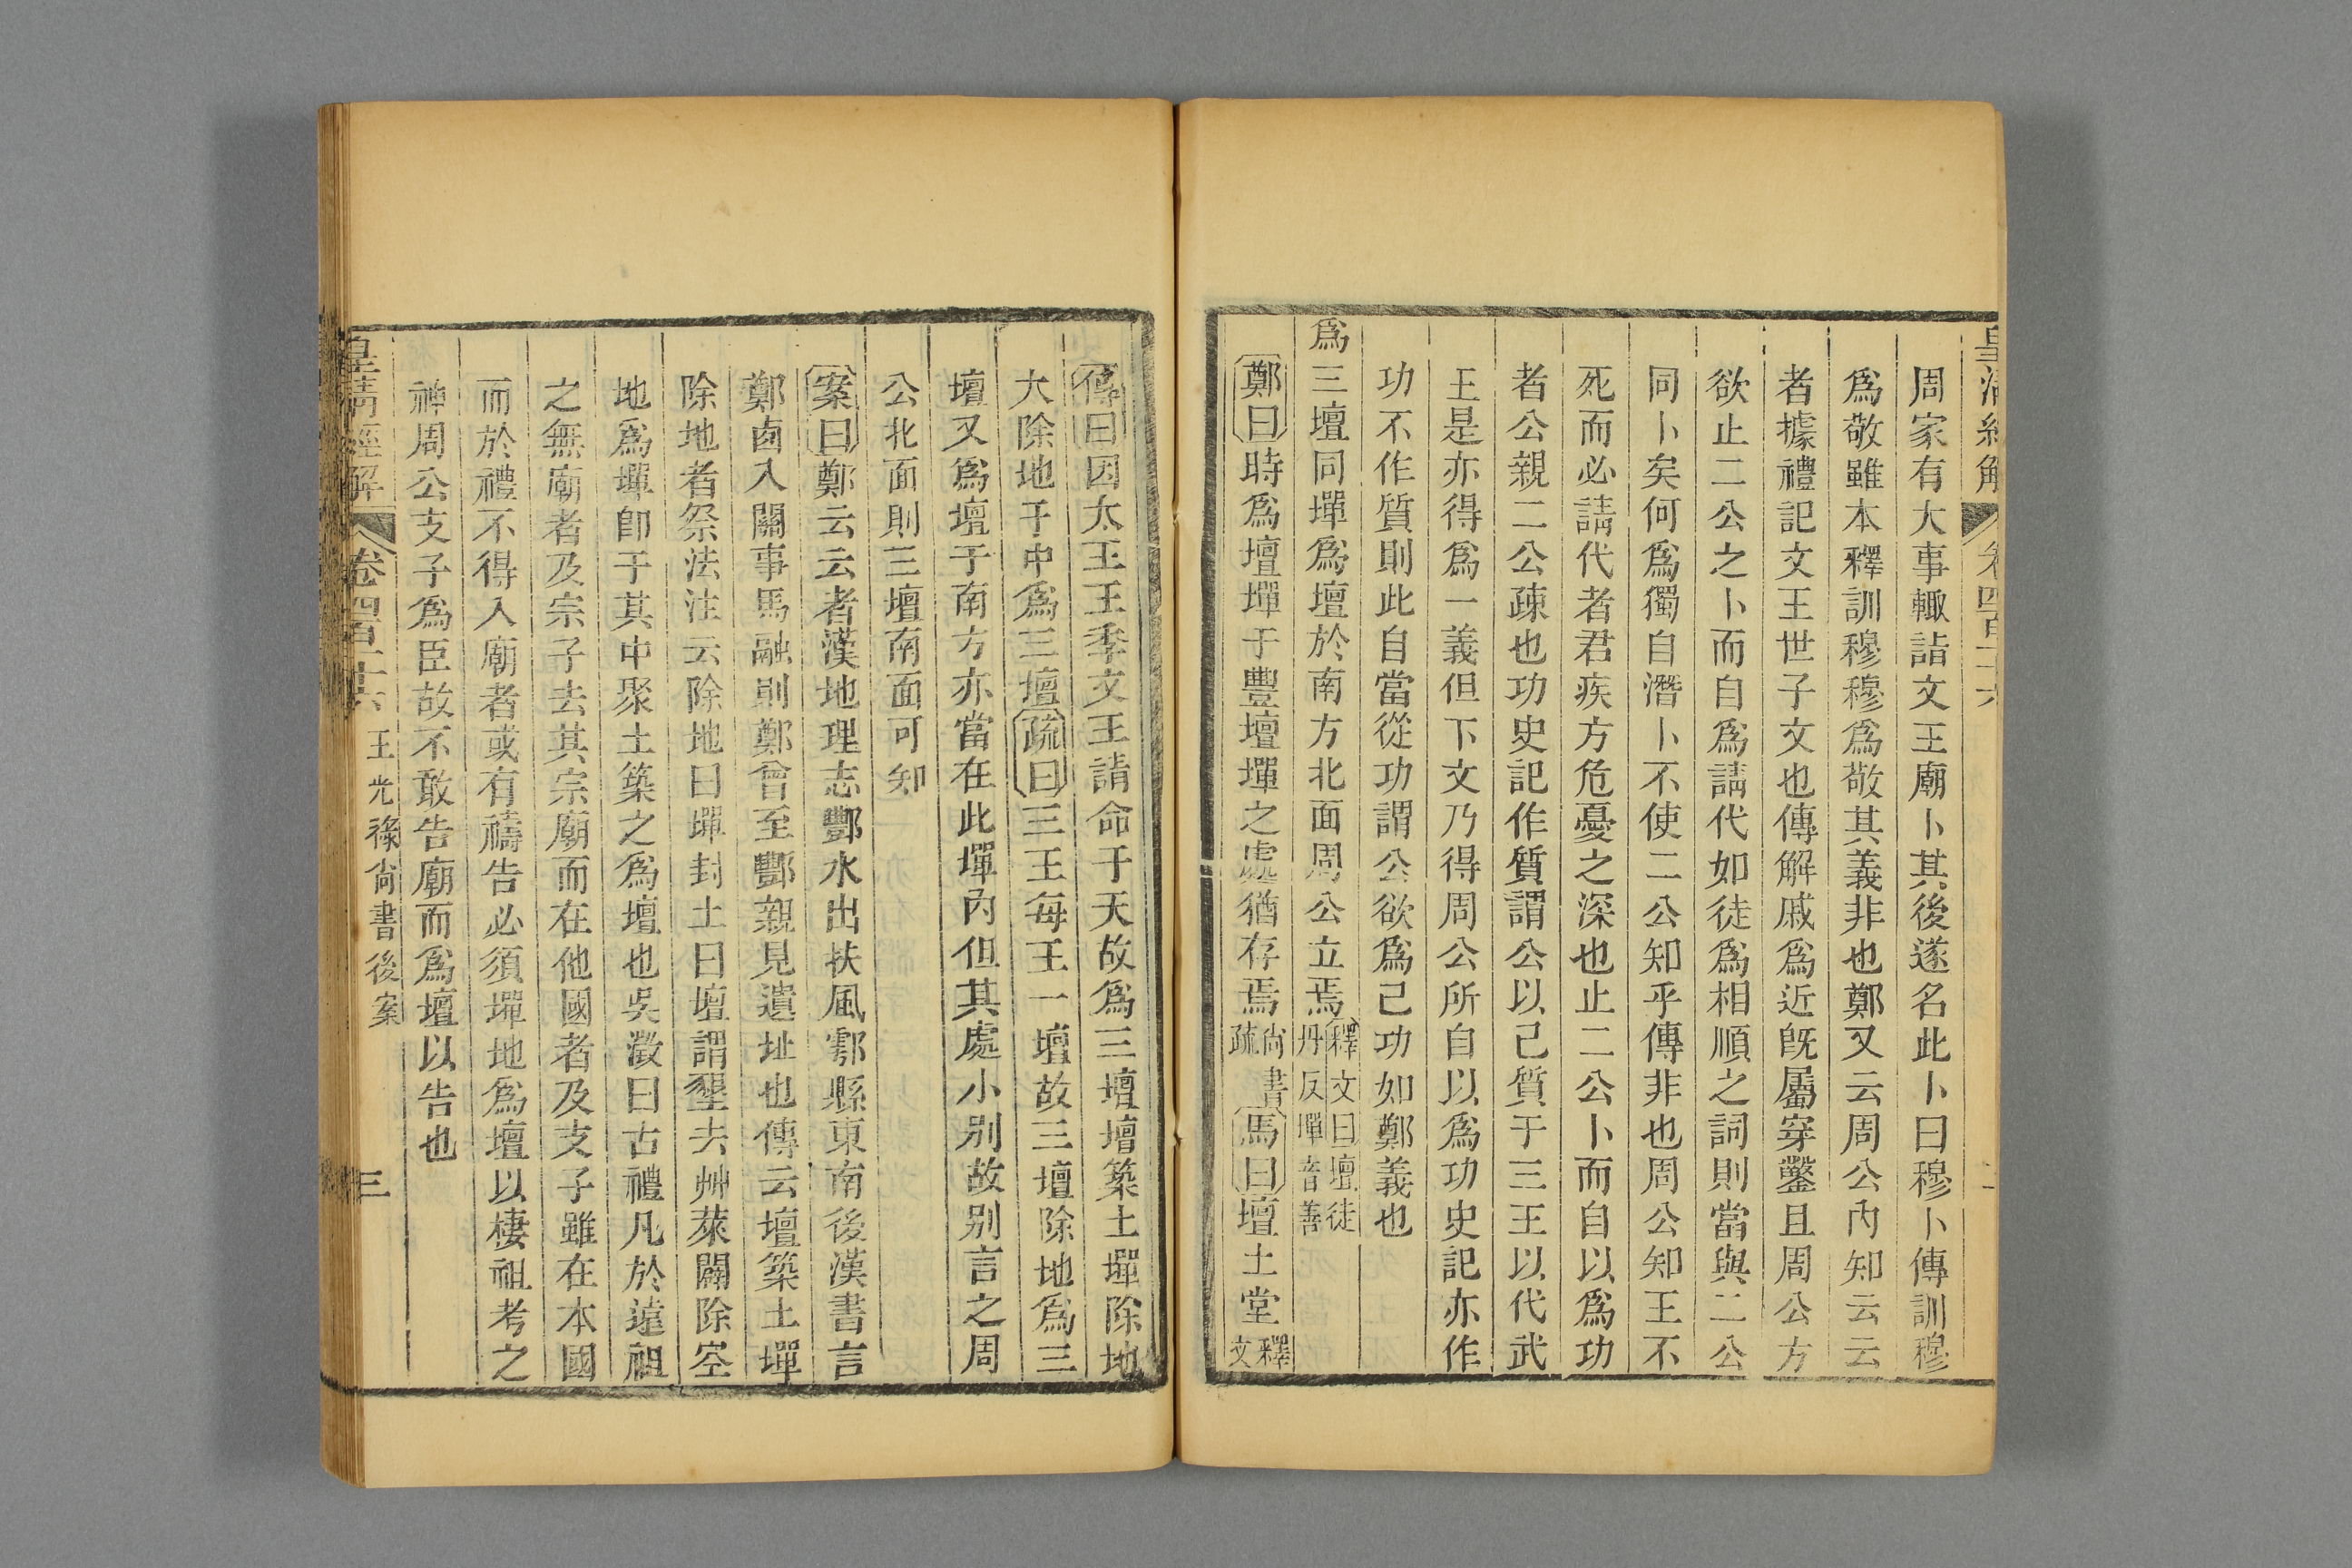 皇清經解 卷四百二十六 二
周家有大事輙詣文王廟卜其後遂名此卜曰穆卜傳訓穆
爲敬雖本釋訓穆穆爲敬其義非也鄭又云周公內知云云
者據禮記文王世子文也傳解戚爲近旣屬穿鑿且周公方
欲止二公之卜而自爲請代如徒爲相順之詞則當與二公
同卜矣何爲獨自潛卜不使二公知乎傳非也周公知王不
死而必請代者君疾方危憂之深也止二公卜而自以爲功
者公親二公疎也功史記作質謂公以己質于三王以代武
王是亦得爲一義但下文乃得周公所自以爲功史記亦作
功不作質則此自當從功謂公欲爲己功如鄭義也
爲三壇同墠爲壇於南方北面周公立焉釋文曰壇徒丹反墠音善
鄭曰時爲壇墠于豐壇墠之處猶存焉尙書疏馬曰壇土堂釋文
傳曰因太王王季文王請命于天故爲三壇壇築土墠除地
大除地于中爲三壇疏曰三王每王一壇故三壇除地爲三
壇又爲壇于南方亦當在此墠內但其處小別故別言之周
公北面則三壇南面可知
案曰鄭云云者漢地理志酆水出扶風鄠縣東南後漢書言
鄭鹵入關事馬融則鄭曾至酆親見遺址也傳云壇築土墠
除地者祭法注云除地曰墠封土曰壇謂墾去艸萊闢除空
地爲墠卽于其中聚土築之爲壇也吳澂曰古禮凡於遠祖
之無廟者及宗子去其宗廟而在他國者及支子雖在本國
而於禮不得入廟者或有禱告必須墠地爲壇以棲祖考之
神周公支子爲臣故不敢告廟而爲壇以告也
皇清經解 卷四百二十六 王光祿尙書後案 三